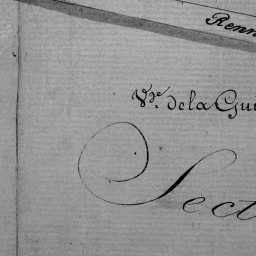 Renn
Vve. de la Gui
Sect